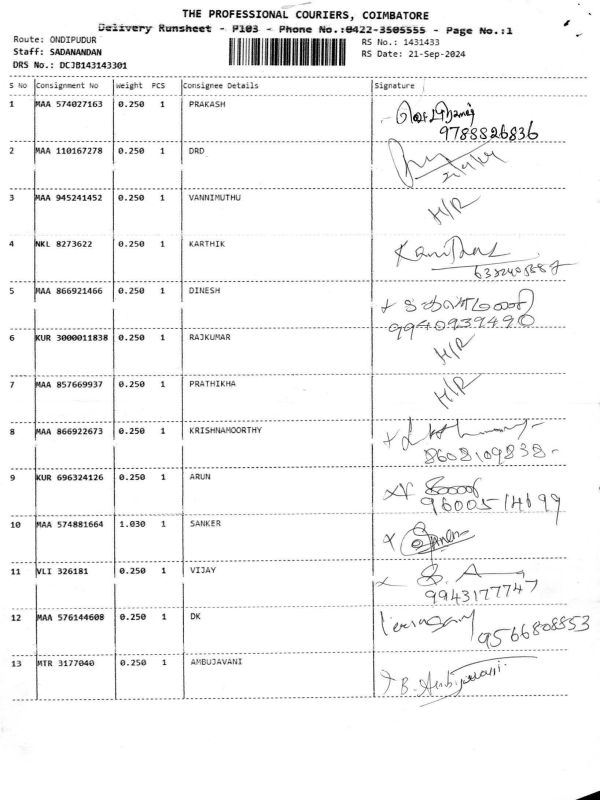 THE PROFESSIONAL COURIERS, COIMBATORE
Delivery Runsheet - P103 - Phone No.:0422-3505555 - Page No.:1
Route: ONDIPUDUR
RS No.: 1431433
Staff: SADANANDAN
RS Date: 21-Sep-2024
DRS No.: DCJB143143301
S No Consignment No Weight PCS Consignee Details Signature
1 MAA 574027163 0.250 1 PRAKASH
9788826836
2 MAA 110167278 0.250 1 DRD
3 MAA 945241452 0.250 1 VANNIMUTHU H/R
4 NKL 8273622 0.250 1 KARTHIK
5 MAA 866921466 0.250 1 DINESH
9940939490
6 KUR 3000011838 0.250 1 RAJKUMAR H/R
7 MAA 857669937 0.250 1 PRATHIKHA H/R
8 MAA 866922673 0.250 1 KRISHNAMOORTHY
8608109838-
9 KUR 696324126 0.250 1 ARUN
9600514699
10 MAA 574881664 1.030 1 SANKER
11 VLI 326181 0.250 1 VIJAY
9943177747
12 MAA 576144608 0.250 1 DK
9566808853
13 MTR 3177040 0.250 1 AMBUJAVANI